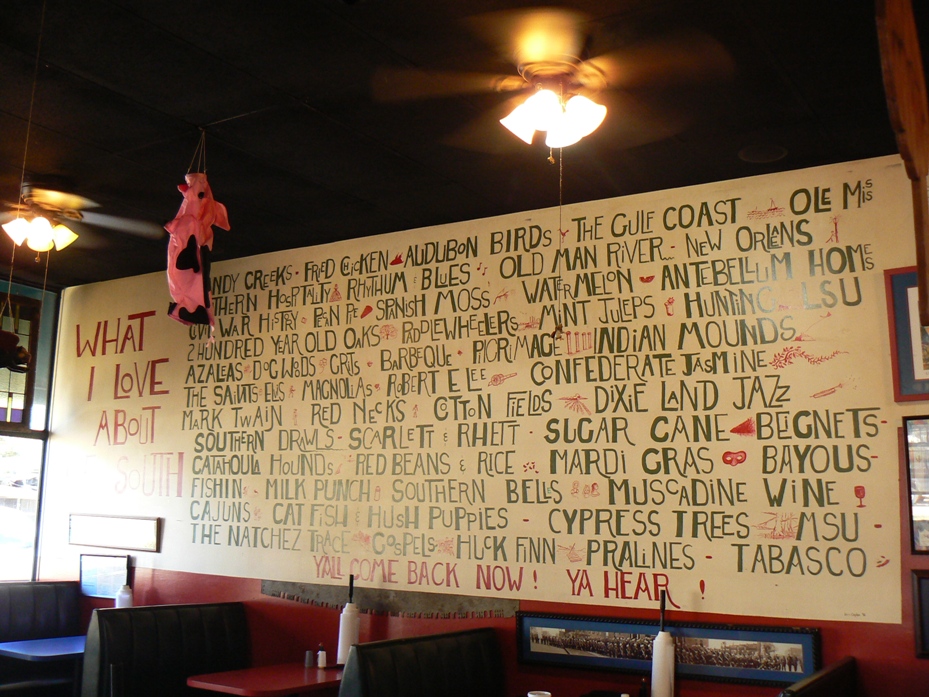 WHAT
I LOVE
ABOUT
SOUTH
NDY CREEKS - FRED CHICKEN AUDUBON BIRDS THE GULF COAST OLE MISS
THERN HOSPITALTY RHYTHUM & BLUES OLD MAN RIVER - NEW ORLANS
CIVIL WAR HISTRY PECAN PIE SPANISH MOSS WATERMELON - ANTEBELLUM HOMES
2 HUNDRED YEAR OLD OAKS PADDLEWHEELERS MINT JULEPS HUNTING LSU
AZALEAS DOGWOODS GRITS BARBEQUE PILGRIMAGE INDIAN MOUNDS
THE SAINTS ELVIS MAGNOLIAS ROBERT E LEE CONFEDERATE JASMINE
MARK TWAIN RED NECKS COTTON FIELDS DIXIE LAND JAZZ
SOUTHERN DRAWLS - SCARLETT & RHETT - SUGAR CANE BEIGNETS -
CATAHOULA HOUNDS RED BEANS & RICE MARDI GRAS BAYOUS -
FISHIN MILK PUNCH SOUTHERN BELLS MUSCADINE WINE
CAJUNS CAT FISH & HUSH PUPPIES - CYPRESS TREES MSU -
THE NATCHEZ TRACE GOSPELS HUCK FINN PRALINES - TABASCO
YALL COME BACK NOW! YA HEAR!